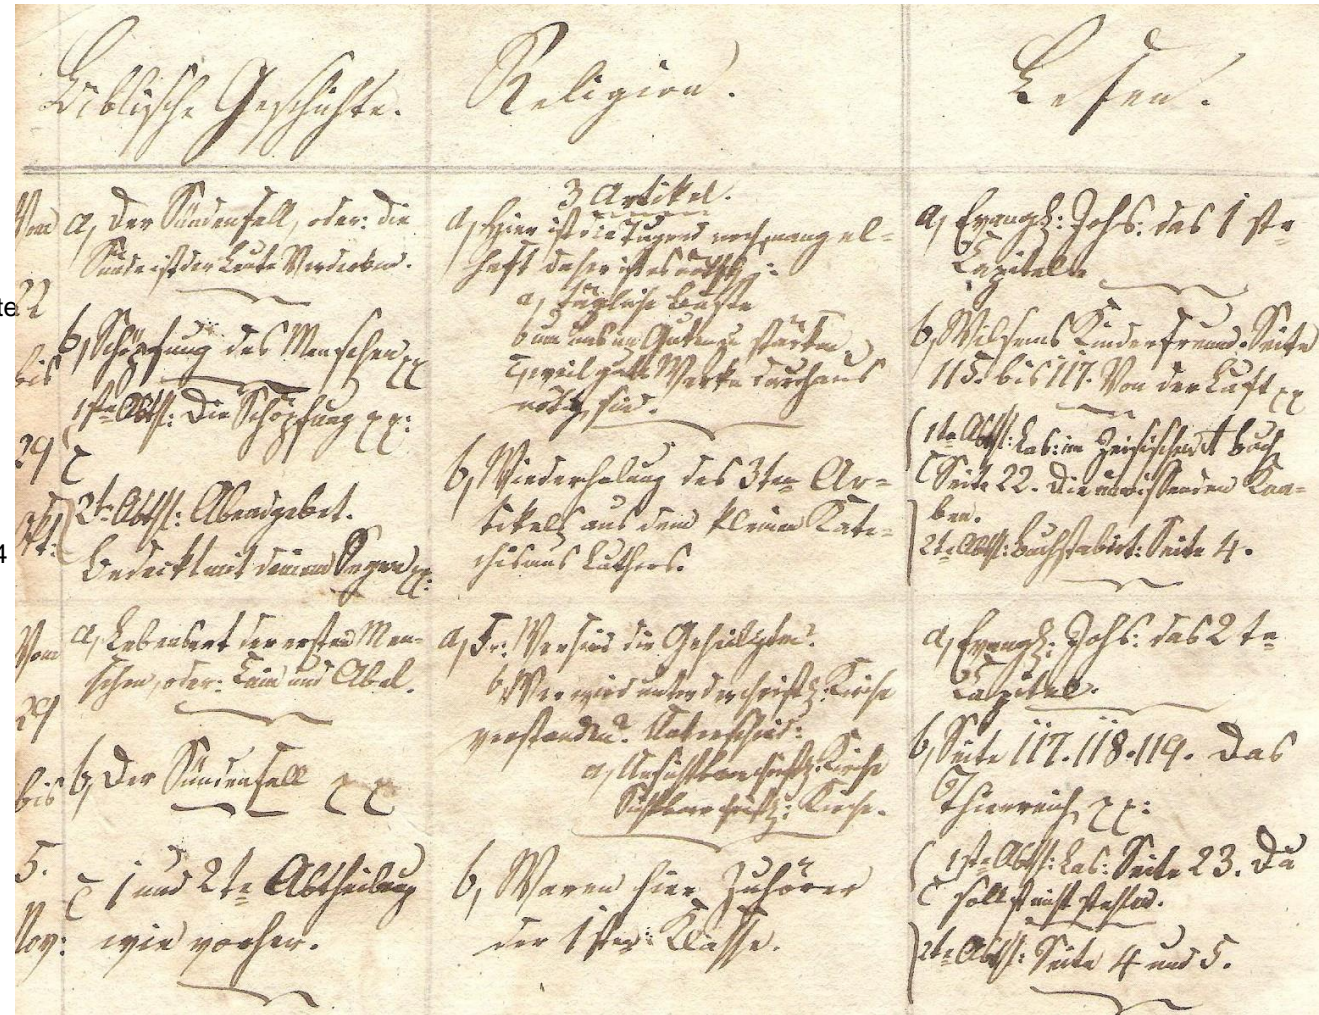 Biblische Geschichte.
Religion.
Lesen.
Vom
22
bis
29
Okt:
a, Der Sündenfall, oder: die
Sünde ist der Leute Verderben.
b, Schöpfung des Menschen xx
1ste Abthl: Die Schöpfung xx:
c
2te Abthl: Abendgebet.
Bedeckt mit deinem Segen xx:
3 Artikel.
a, Hier ist die Tugend noch mangel=
haft daher ist es nöthig:
a, tägliche Busse
b um uns im Guten zu stärken
c, weil gute Werke durchaus
nötig sind.
b, Wiederholung des 3ten Ar=
tikels aus dem kleinen Kate=
chismus Luthers.
a, Evangl: Johs: das 1ste
Kapitel
b, Wilsens Kinderfreund. Seite
115. bis 117. Von der Luft xx
1te Abthl: Las: im Zeisischen buch
c Seite 22. Die unwissenden Kna=
ben.
2te Abthl: buchstabirt: Seite 4.
Vom
29
bis
5.
Nov:
a, Lebensart der ersten Men=
schen, oder: Cain und Abel.
b, Der Sündenfall xx
c 1 und 2te Abtheilung
wie vorher.
a, Fr: Wer sind die Geheiligten?
b, Wer wird unter der christl: Kirche
verstanden? Unterschied:
a, Unsichtbare christl: Kirche
Sichtbare christl: Kirche.
b, Waren hier Zuhörer
der 1sten Classe.
a, Evangl: Johs: das 2te
Kapitel.
b, Seite 117. 118. 119. Das
Thierreich xx:
1ste Abthl: Las: Seite 23. Du
c sollst nicht stehlen.
2te Abthl: Seite 4 und 5.
te
4